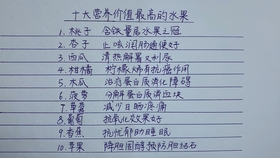 十大营养价值最高的水果
1.桃子 含铁量居水果之冠
2.杏子 止咳润肠通便好
3.西瓜 清热解暑又利尿
4.柑橘 柠檬烯有抗癌作用
5.木瓜 治蛋白质消化障碍
6.菠萝 分解蛋白质溶血块
7.草莓 减少日晒疼痛
8.葡萄 抗氧化效果好
9.香蕉 抗忧郁助睡眠
10.苹果 降胆固醇预防胆结石